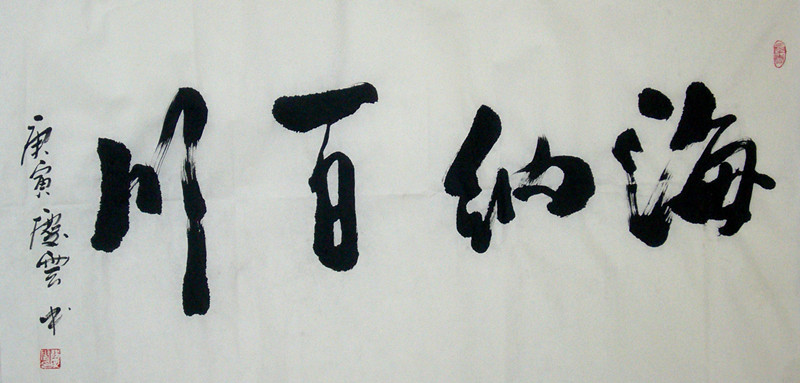 海纳百川
庚寅慶雲书